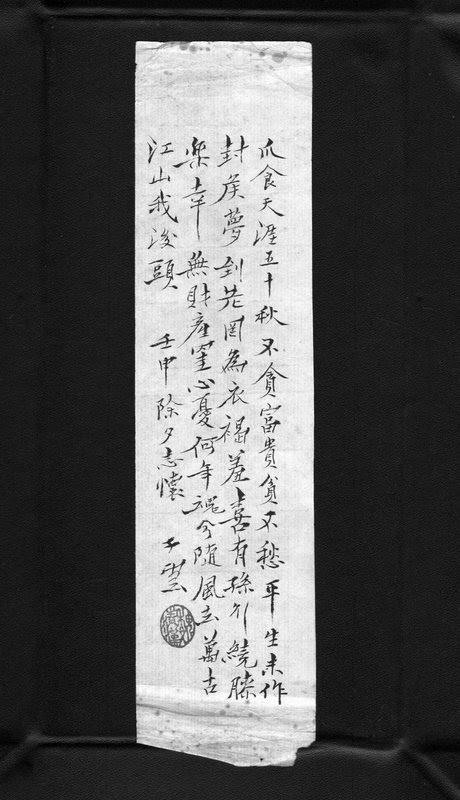 爪食天涯五十秋不貪富貴貧不愁平生未作
封侯夢到老罔為衣褐羞喜有孫儿繞膝
樂幸無財產罣心憂何年魂兮隨風去萬古
江山我浚頭 壬申除夕志懷 子雲